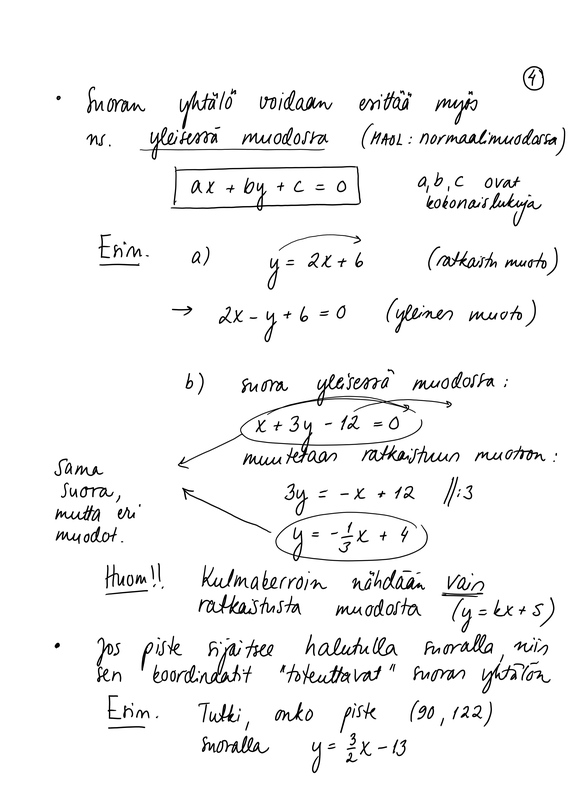 4
• Suoran yhtälö voidaan esittää myös
ns. yleisessä muodossa (MAOL: normaalimuodossa)
ax + by + c = 0
a, b, c ovat
kokonaislukuja
Esim. a) y = 2x + 6 (ratkaistu muoto)
→ 2x - y + 6 = 0 (yleinen muoto)
b) suora yleisessä muodossa:
x + 3y - 12 = 0
muutetaan ratkaistuun muotoon:
Sama
suora,
mutta eri
muodot.
3y = -x + 12 //:3
y = -1/3 x + 4
Huom!! Kulmakerroin nähdään vain
ratkaistusta muodosta (y = kx + s)
• Jos piste sijaitsee halutulla suoralla, niin
sen koordinaatit "toteuttavat" suoran yhtälön
Esim. Tutki, onko piste (90, 122)
suoralla y = 3/2 x - 13